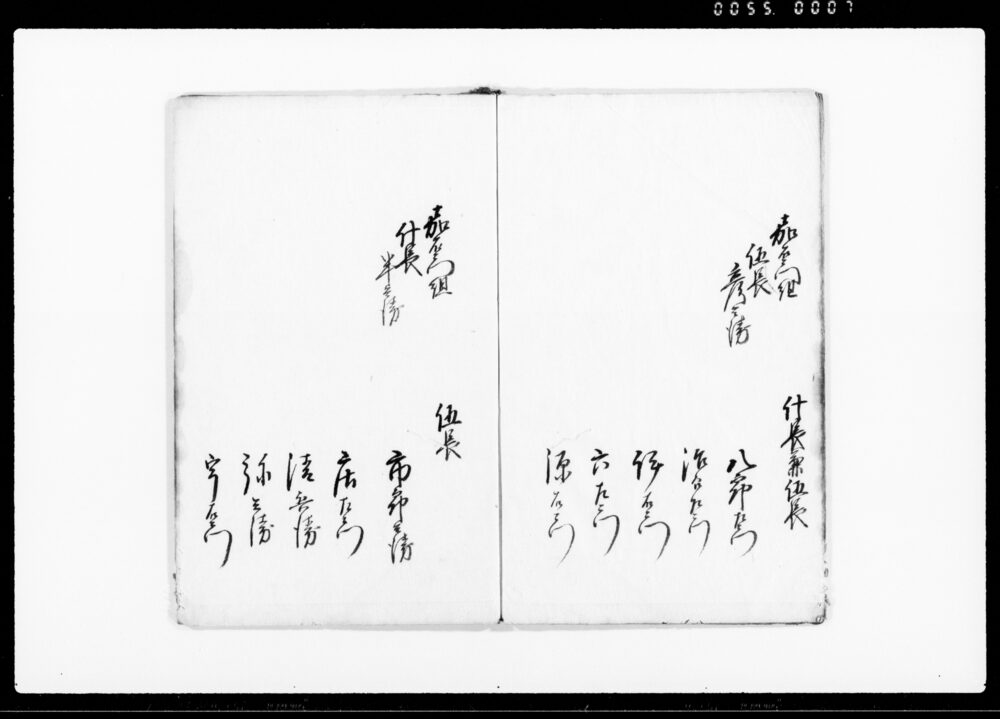 0055. 0007
嘉右衛門組
伍長
彦兵衛
什長兼伍長
八郎左衛門
治郎左衛門
伊右衛門
六左衛門
源右衛門
嘉右衛門組
什長
半兵衛
伍長
市郎兵衛
庄左衛門
清兵衛
弥兵衛
宇右衛門